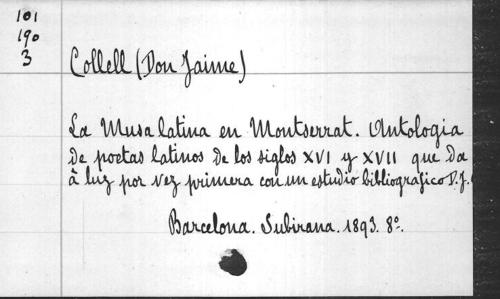 101
190
3
Collell (Don Jaime)
La Musa latina en Montserrat. Antologia
de poetas latinos de los siglos XVI y XVII que da
à luz por vez primera con un estudio bibliografico D. J.
Barcelona. Subirana. 1893. 8º.